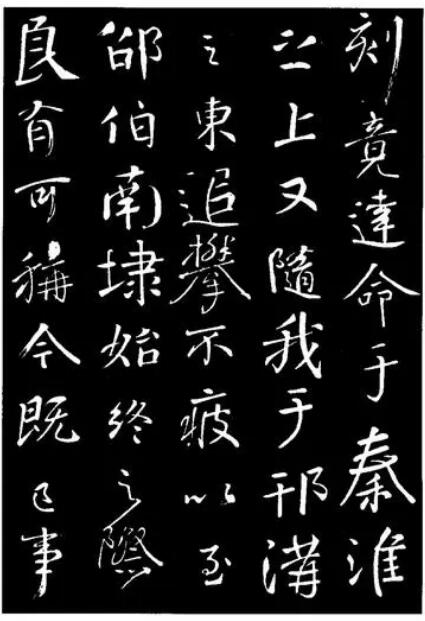 刻竟達命于秦淮
之上又隨我于邗溝
之東追攀不疲以至
邵伯南埭始終之際
良有可稱今既已事